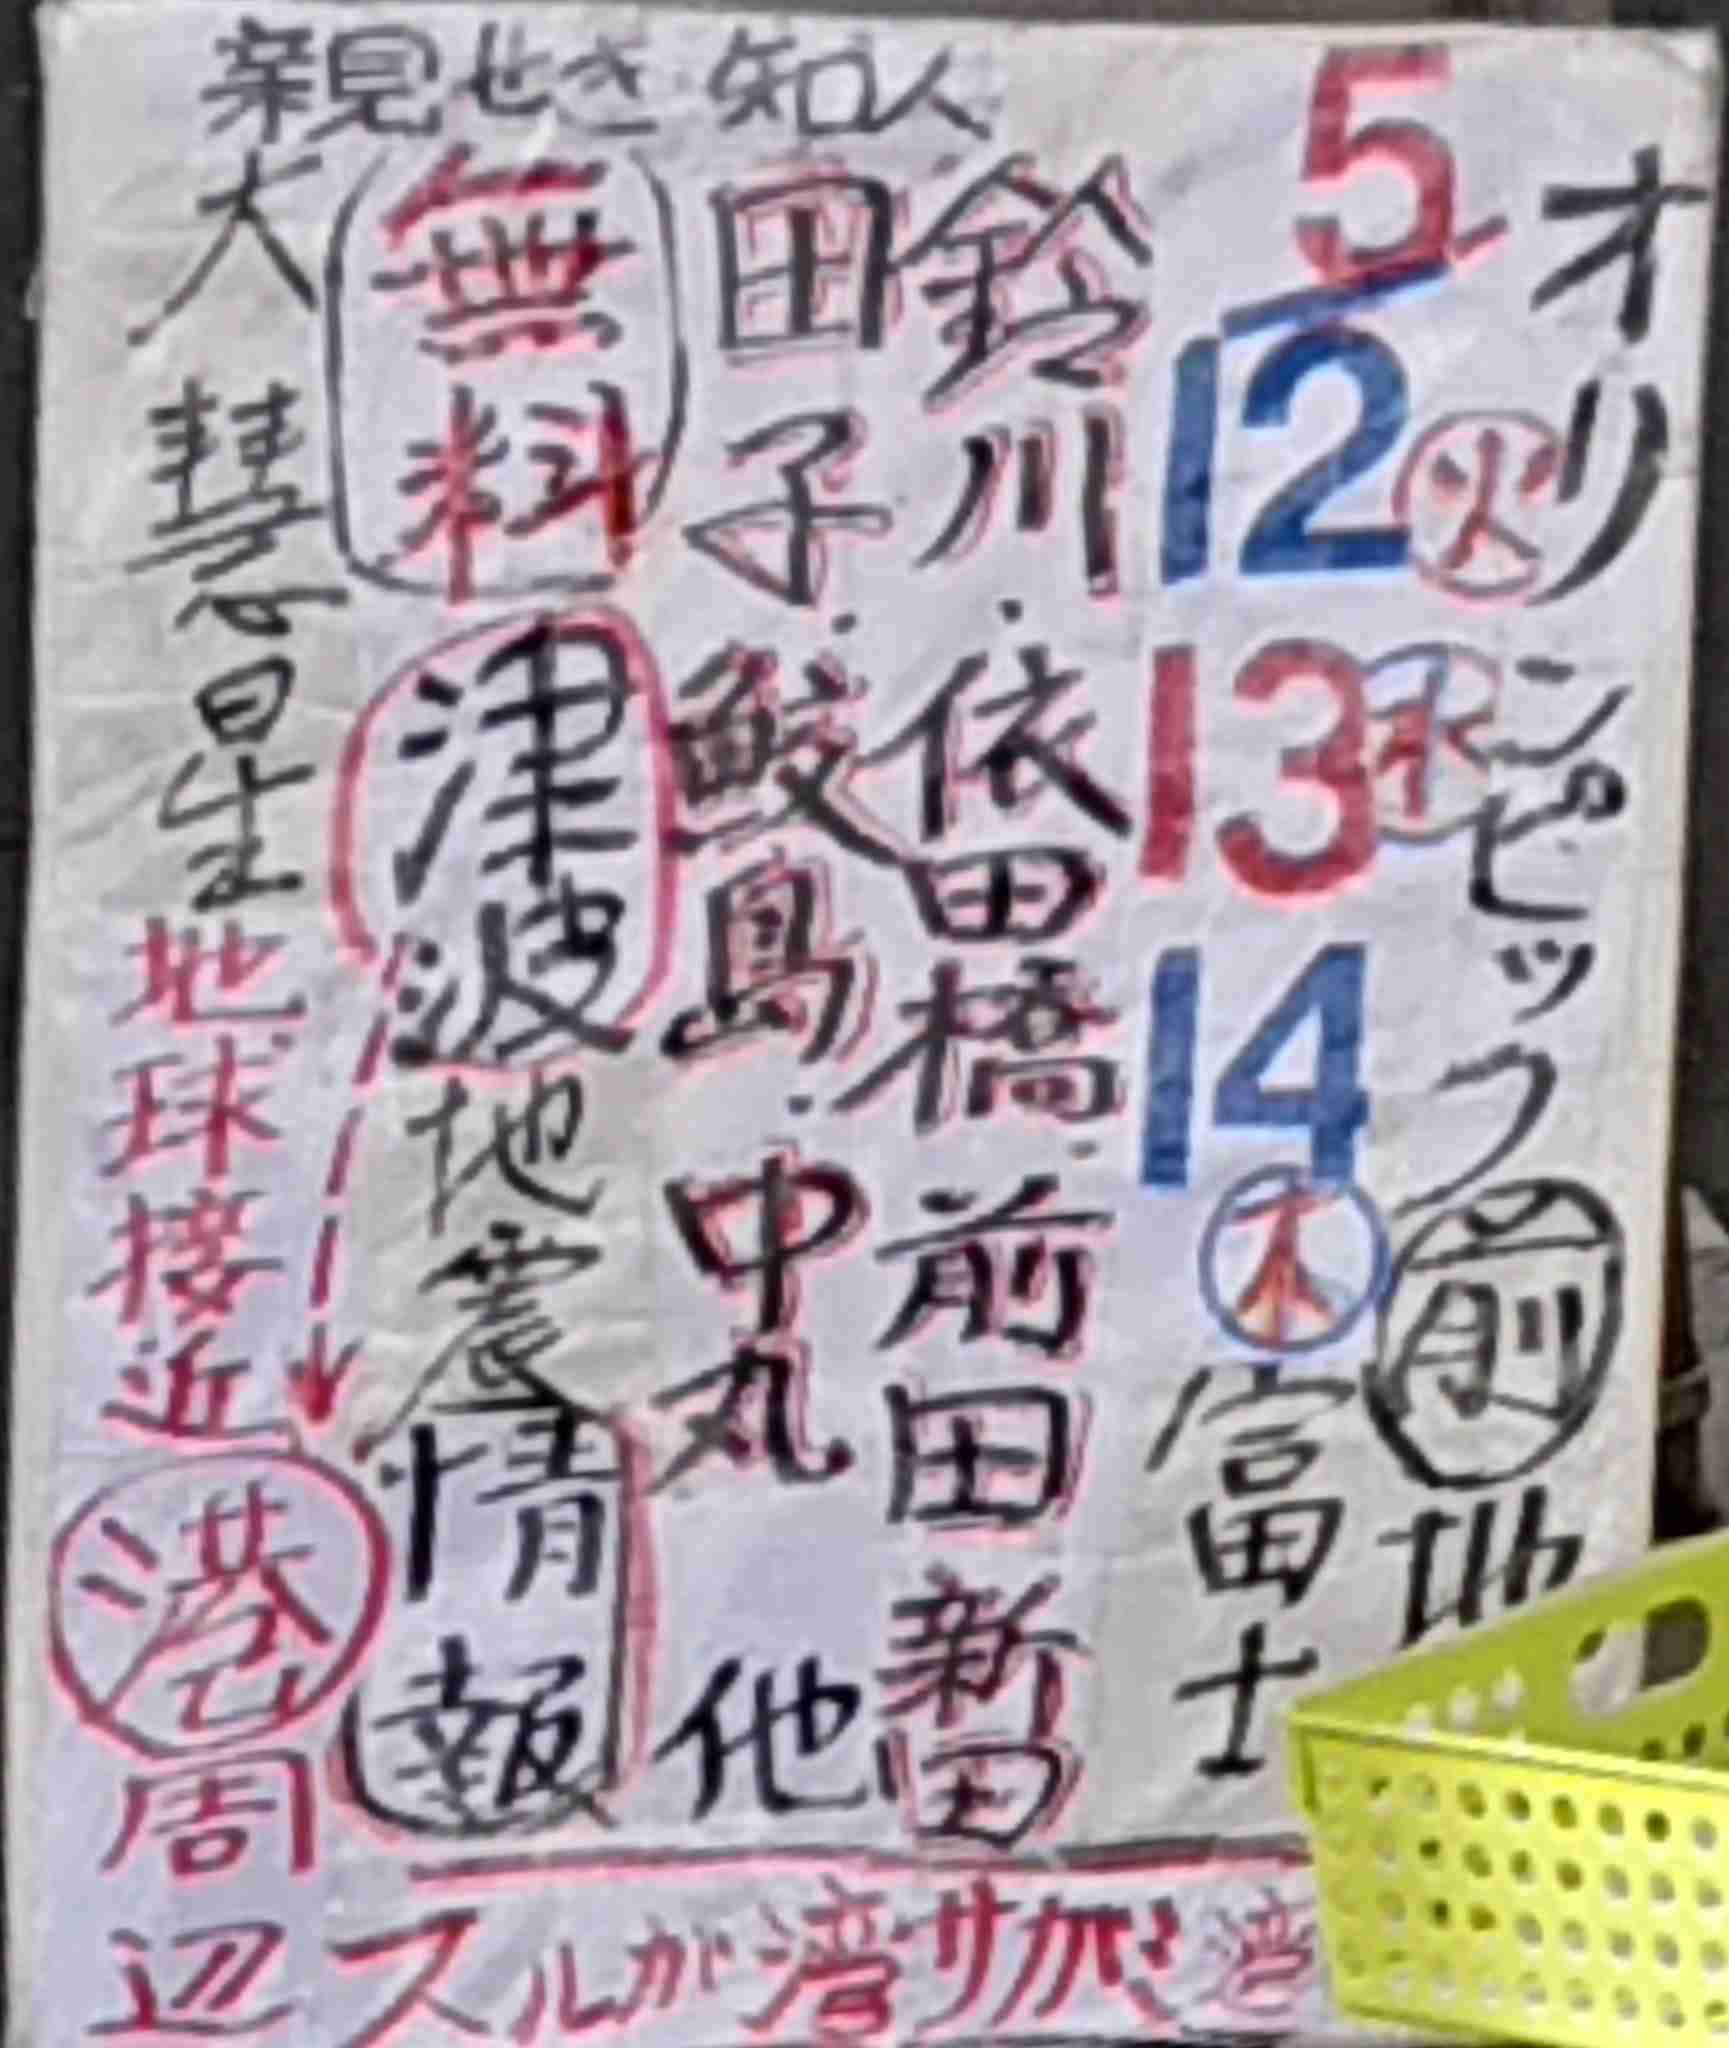 親せき 知人
オリンピック前地
5
12火
13水
14木
富士
鈴川・依田橋・前田新田
田子・鮫島・中丸 他
無料 津波地震情報
大彗星地球接近港周辺
スルガ湾サガミ湾